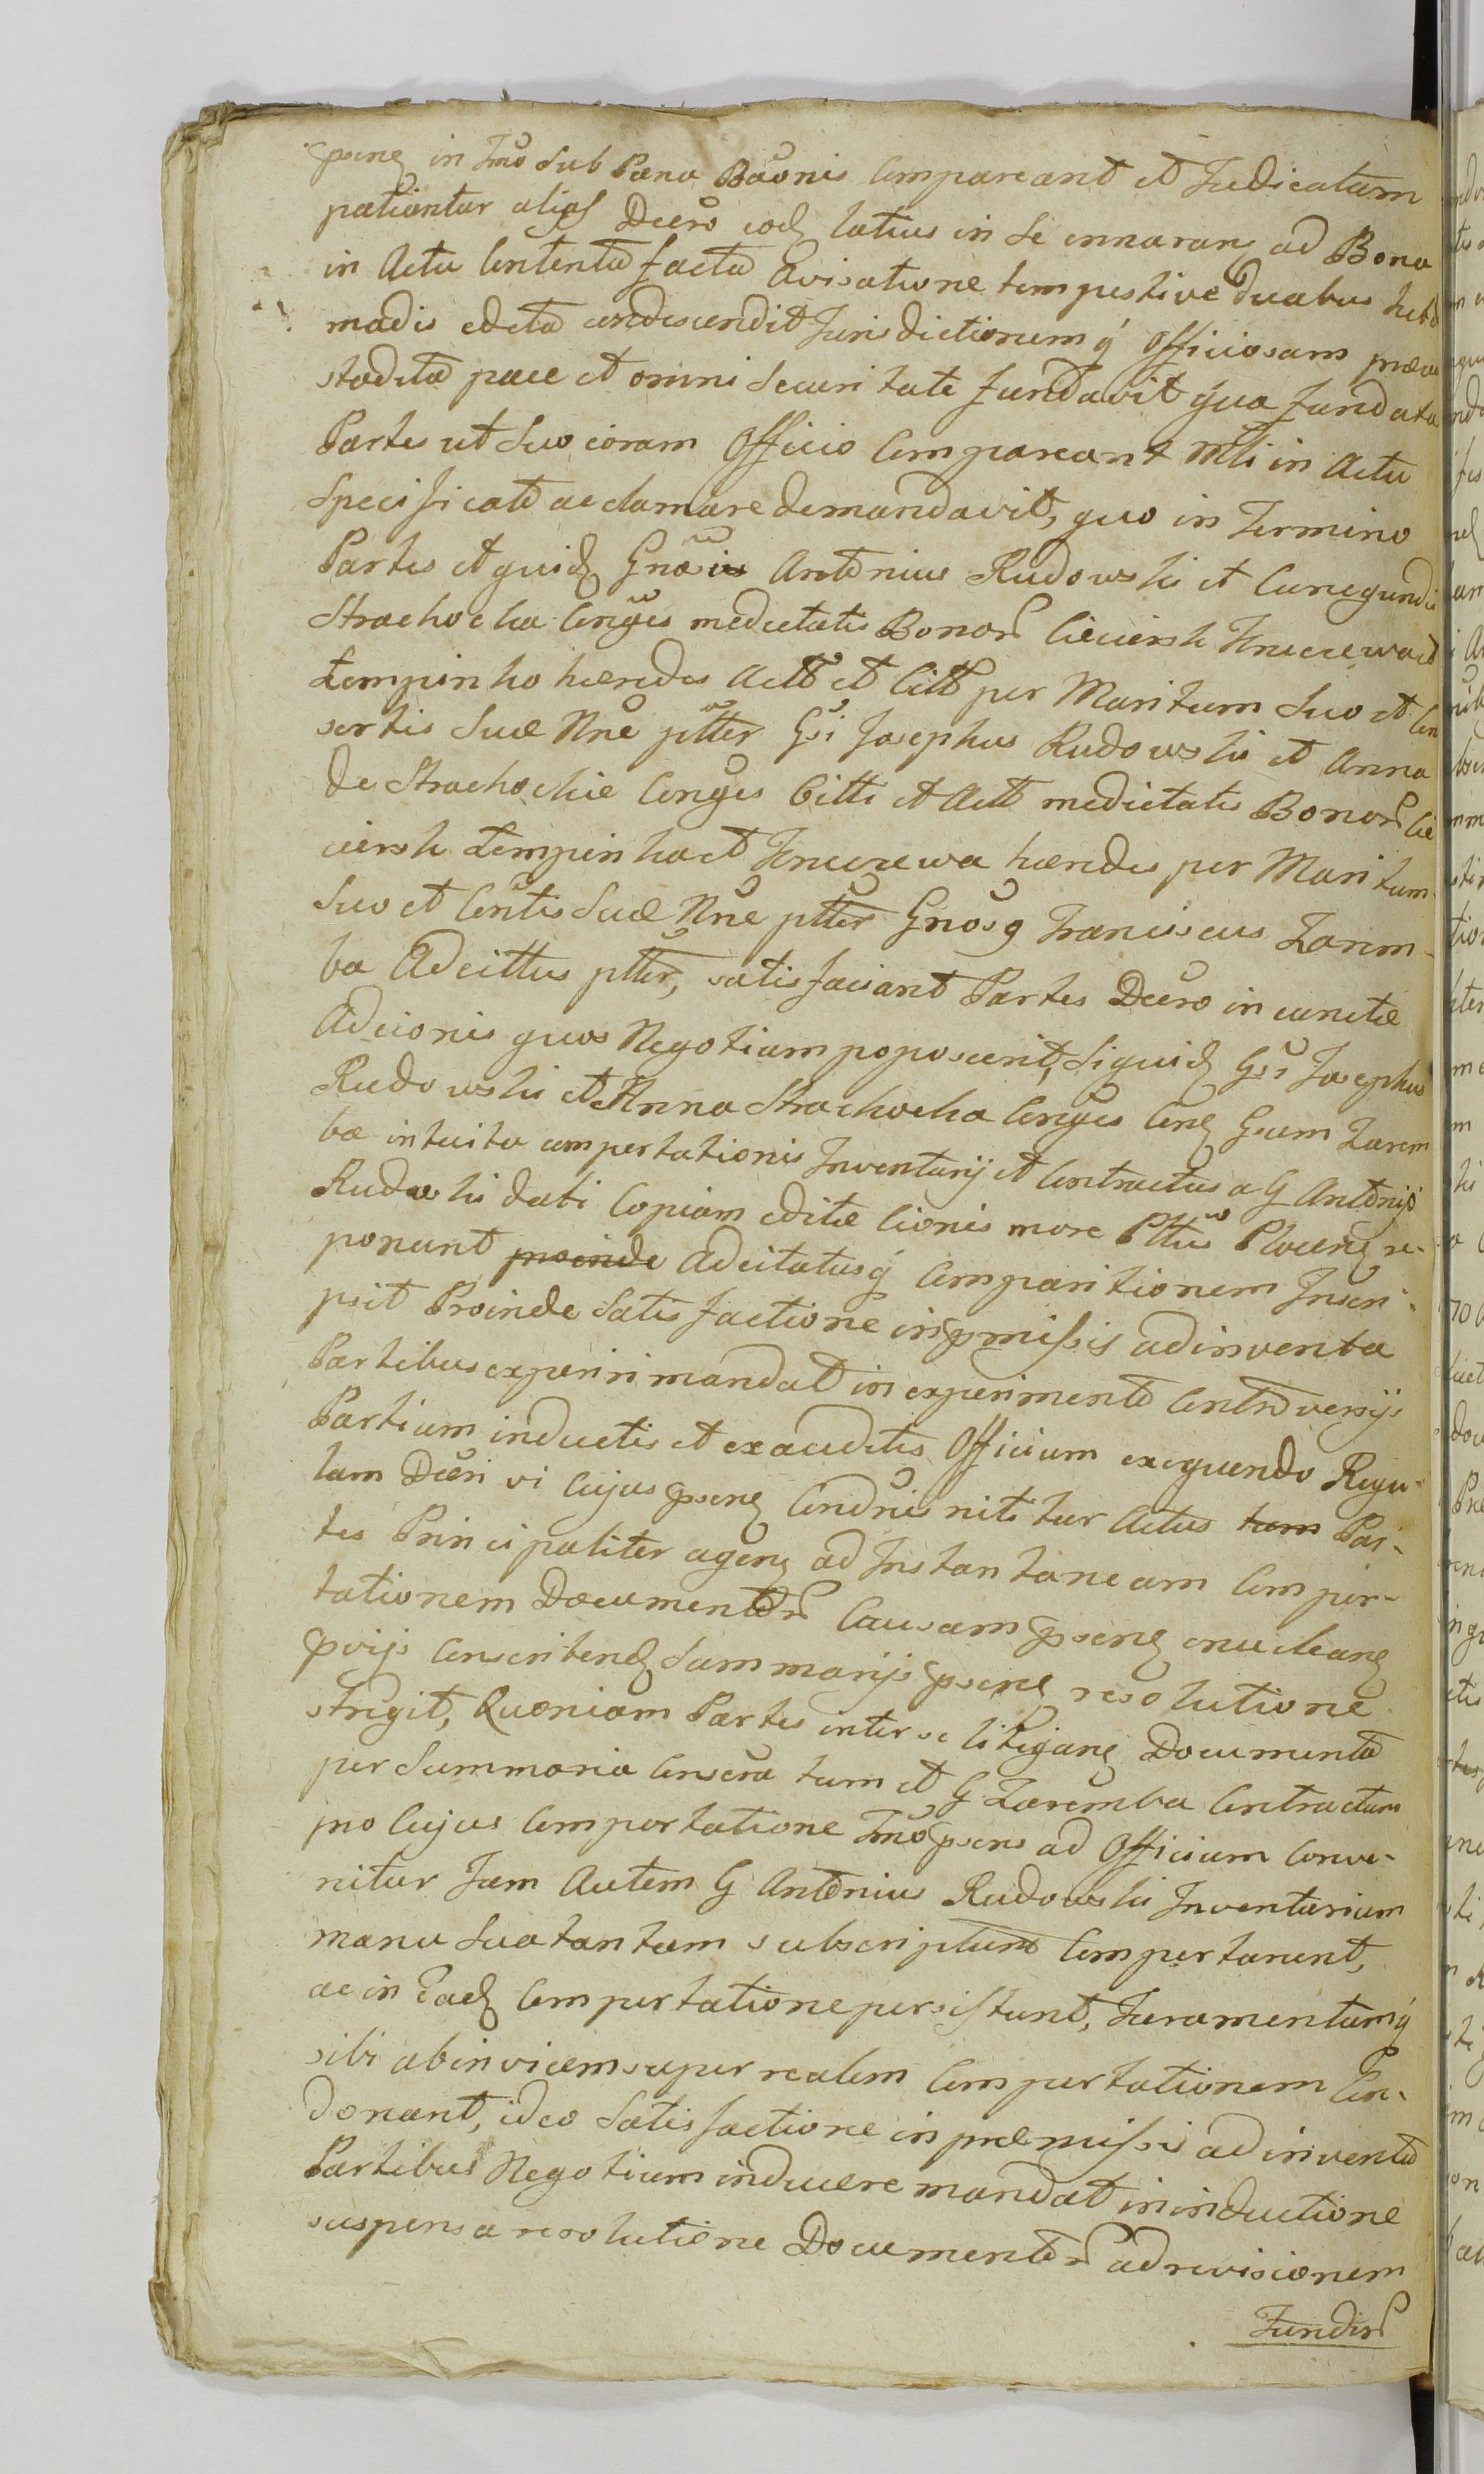 in Tmo sub Pæna Baonis Compareant et Judicatum
patiantur alias Decro latius in se ennaran ad Bona
in Actu Contenta facta avisatione tempestive duabus hebdo
madis edita condescendit Jurisdictionemq́ officiosam
pace et omni securitate fundavit qua fundata
Partes ut suo coram Officio Compareant in Actu
specificato acclamare demandavit, quo in Termino
Partes et quid Antonius Rudowski et Cunegundis
Strachocka Conges medietatis Bonor Cieciersk et
Łempinko hæredes Actt et Citt per Maritum suo et Con
sortis suæ Nne ptter Gsi Josephus Rudowski et Anna
de Strachockie Conges Citti et Actt medietatis Bonor Cie
ciersk Łempinko et hæredes per Maritum
suo et Contis suæ Nne ptter Gnosq Franciscus Zarem-
ba Adcittus ptter, satisfaciant Partes Decro in cunctæ
Adcionis quos Negotium poposcerit, siquid Gsi Josephus
Rudowski et Anna Strachocka Conges Gsum Zarem
bæ intuitu comportationis Inventarij et Contractus a G Antonio
Rudowski dati Copiam editæ Cionis more re-
ponunt proinde Adcitatusq́ Comparitionem Inscri-
psit Proinde satisfactione in pmissis adinventa
Partibus experiri mandat in experimento Controversijs
Partium inductis et exauditis Officium exequendo Regu-
lam Decri vi Cujus Condnis nititur Actus tam Par-
tes Principaliter agen ad Instantaneam Compor-
tationem Documentor Causam enuclean
Summarijs resolutione
strigit, Quoniam Partes inter se litigan Documenta
per Summaria tum et G Zaremba Contractum
pro Cujus Comportatione Tmo psens ad Officium Conve-
nitur Jam Autem G Antonius Rudowski Inventarium
manu sua tantum subscriptum Comportarunt,
ac in Ead Comportatione persistunt, Juramentumq́
sibi abinvicem super realem Comportationem Con-
donant, ideo Satisfactione in præmissis adinventa
Partibus Negotium inducere mandat in inductione
suspensa resolutione Documentor ad revisionem